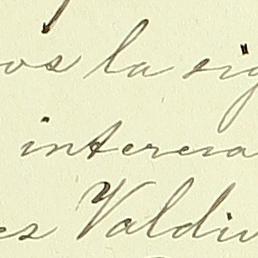 os la sig
interesa
es Valdiv